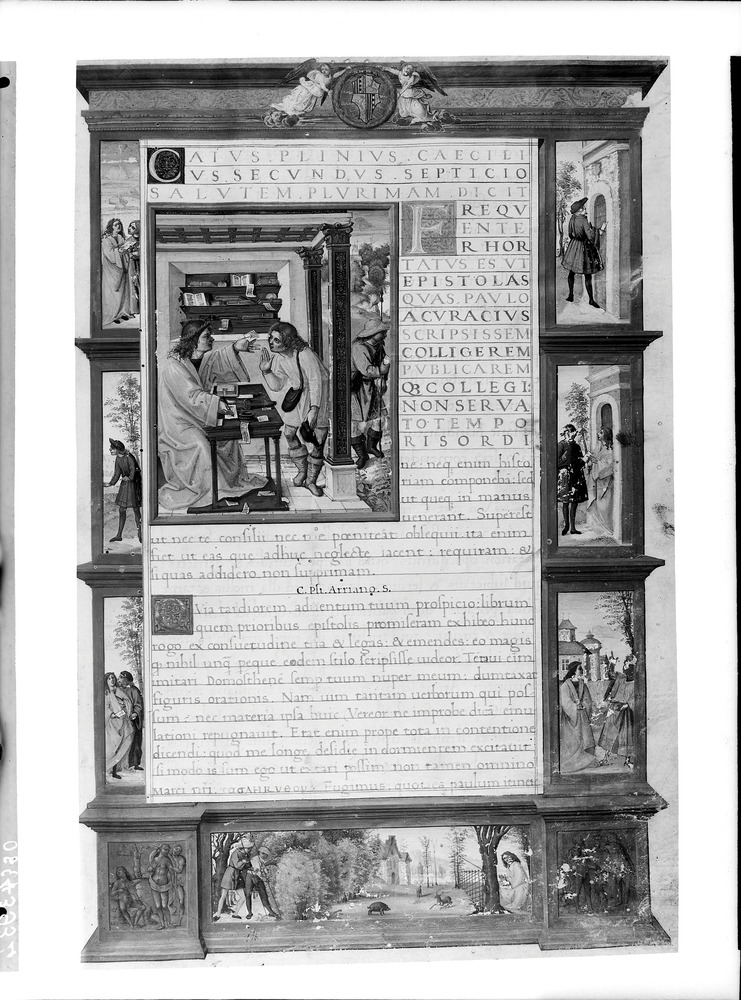 CAIVS. PLINIVS. CAECILI
VS. SECVNDVS. SEPTICIO
SALVTEM. PLVRIMAM. DICIT
FREQV
ENTE
R HOR
TATVS ES VT
EPISTOLAS
QVAS. PAVLO
ACVRACIVS
SCRIPSISSEM
COLLIGEREM
PVBLICAREM
Q3 COLLEGI:
NON SERVA
TO TEMPO
RIS ORDI
ne: neq enim histo
riam componeba: sed
ut queq in manus
uenerant. Superest
ut nec te consilii nec me pœniteat obsequii. ita enim
fiet ut eas que adhuc neglecte iacent: requiram: &
si quas addidero non supprimam.
C. Pli. Arriano. S.
Via tardiorem aduentum tuum prospicio: librum
quem prioribus epistolis promiseram exhibeo. hunc
rogo ex consuetudine tua & legas: & emendes: eo magis
q nihil unq peque eodem stilo scripsisse uideor. Tetaui eim
imitari Demosthenē semp tuum nuper meum: dumtaxat
figuris orationis. Nam uim tantam uerborum qui pos
sum: nec materia ipsa huic. Vereor ne improbe dicā emu
lationi repugnauit. Erat enim prope tota in contentione
dicendi: quod me longe desidie in dormientem excitauit
si modo is sum ego ut excitari possim. non tamen omnino
Marci nr̄i Fugimus. quotiēs paulum itinere